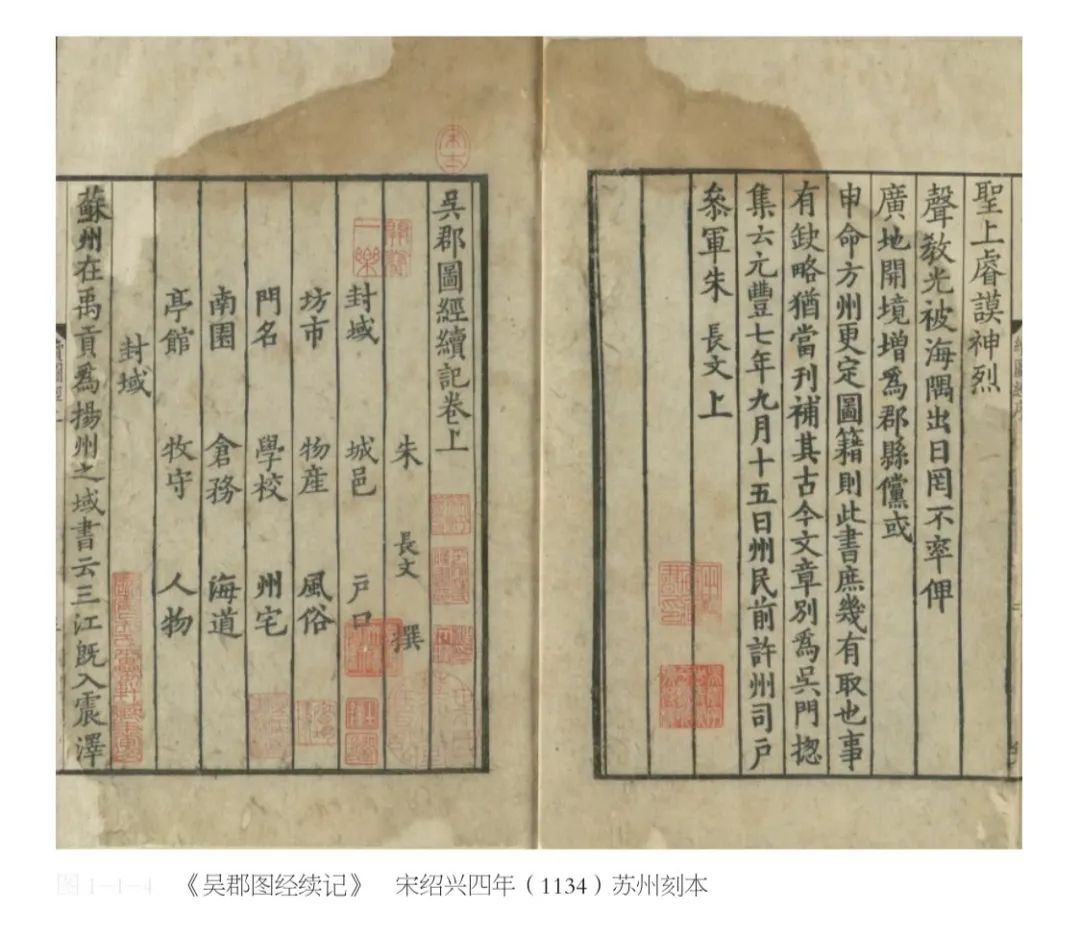 聖上睿謨神烈
聲敎光被海隅出日罔不率俾
廣地開境增爲郡縣儻或
申命方州更定圖籍則此書庶幾有取也事
有缺略猶當刊補其古今文章別爲吳門揔
集云元豐七年九月十五日州民前許州司戶
叅軍朱 長文 上
吳郡圖經續記卷上
朱 長文 撰
封域 城邑 戶口
坊市 物産 風俗
門名 學校 州宅
南園 倉務 海道
亭館 牧守 人物
封域
蘇州在禹貢爲揚州之域書云三江旣入震澤
图1-1-4 《吴郡图经续记》 宋绍兴四年（1134）苏州刻本